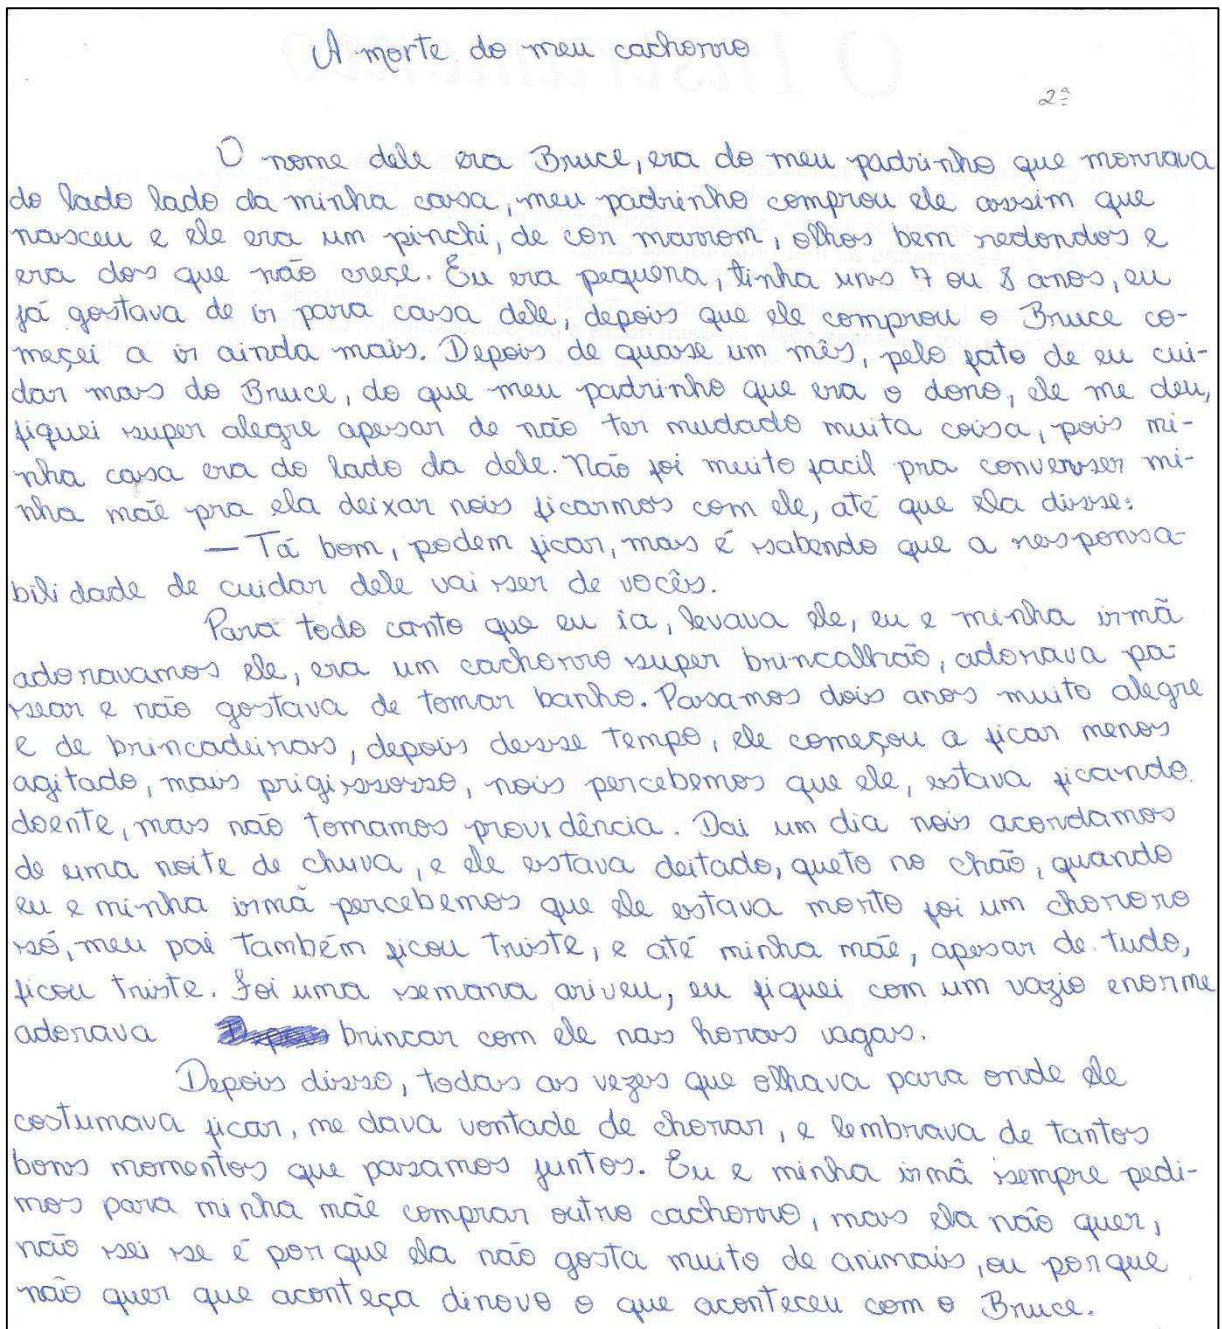 A morte do meu cachorro
2ª
O nome dele era Bruce, era do meu padrinho que morrava
do lado lado da minha casa, meu padrinho comprou ele assim que
nasceu e ele era um pinchi, de cor marrom, olhos bem redondos e
era dos que não creçe. Eu era pequena, tinha uns 7 ou 8 anos, eu
já gostava de ir para casa dele, depois que ele comprou o Bruce co-
meçei a ir ainda mais. Depois de quase um mês, pelo fato de eu cui-
dar mas do Bruce, do que meu padrinho que era o dono, ele me deu,
fiquei super alegre apesar de não ter mudado muita coisa, pois mi-
nha casa era do lado da dele. Não foi muito facil pra converser mi-
nha mãe pra ela deixar nois ficarmos com ele, até que ela disse:
— Tá bom, podem ficar, mas é sabendo que a responsa-
bili dade de cuidar dele vai ser de vocês.
Para todo canto que eu ia, levava ele, eu e minha irmã
adoravamos ele, era um cachorro super brincalhão, adorava pa-
sear e não gostava de tomar banho. Pasamos dois anos muito alegre
e de brincadeiras, depois desse tempo, ele começou a ficar menos
agitado, mais prigissosso, nois percebemos que ele, estava ficando
doente, mas não tomamos providência. Dai um dia nois acordamos
de uma noite de chuva, e ele estava deitado, queto no chão, quando
eu e minha irmã percebemos que ele estava morto foi um chororo
só, meu pai também ficou triste, e até minha mãe, apesar de tudo,
ficou triste. Foi uma semana ariveu, eu fiquei com um vazio enorme
adorava brincar com ele nas horas vagas.
Depois disso, todas as vezes que olhava para onde ele
costumava ficar, me dava vontade de chorar, e lembrava de tantos
bons momentos que pasamos juntos. Eu e minha irmã sempre pedi-
mos para minha mãe comprar outro cachorro, mas ela não quer,
não sei se é por que ela não gosta muito de animais, ou porque
não quer que aconteça dinovo o que aconteceu com o Bruce.